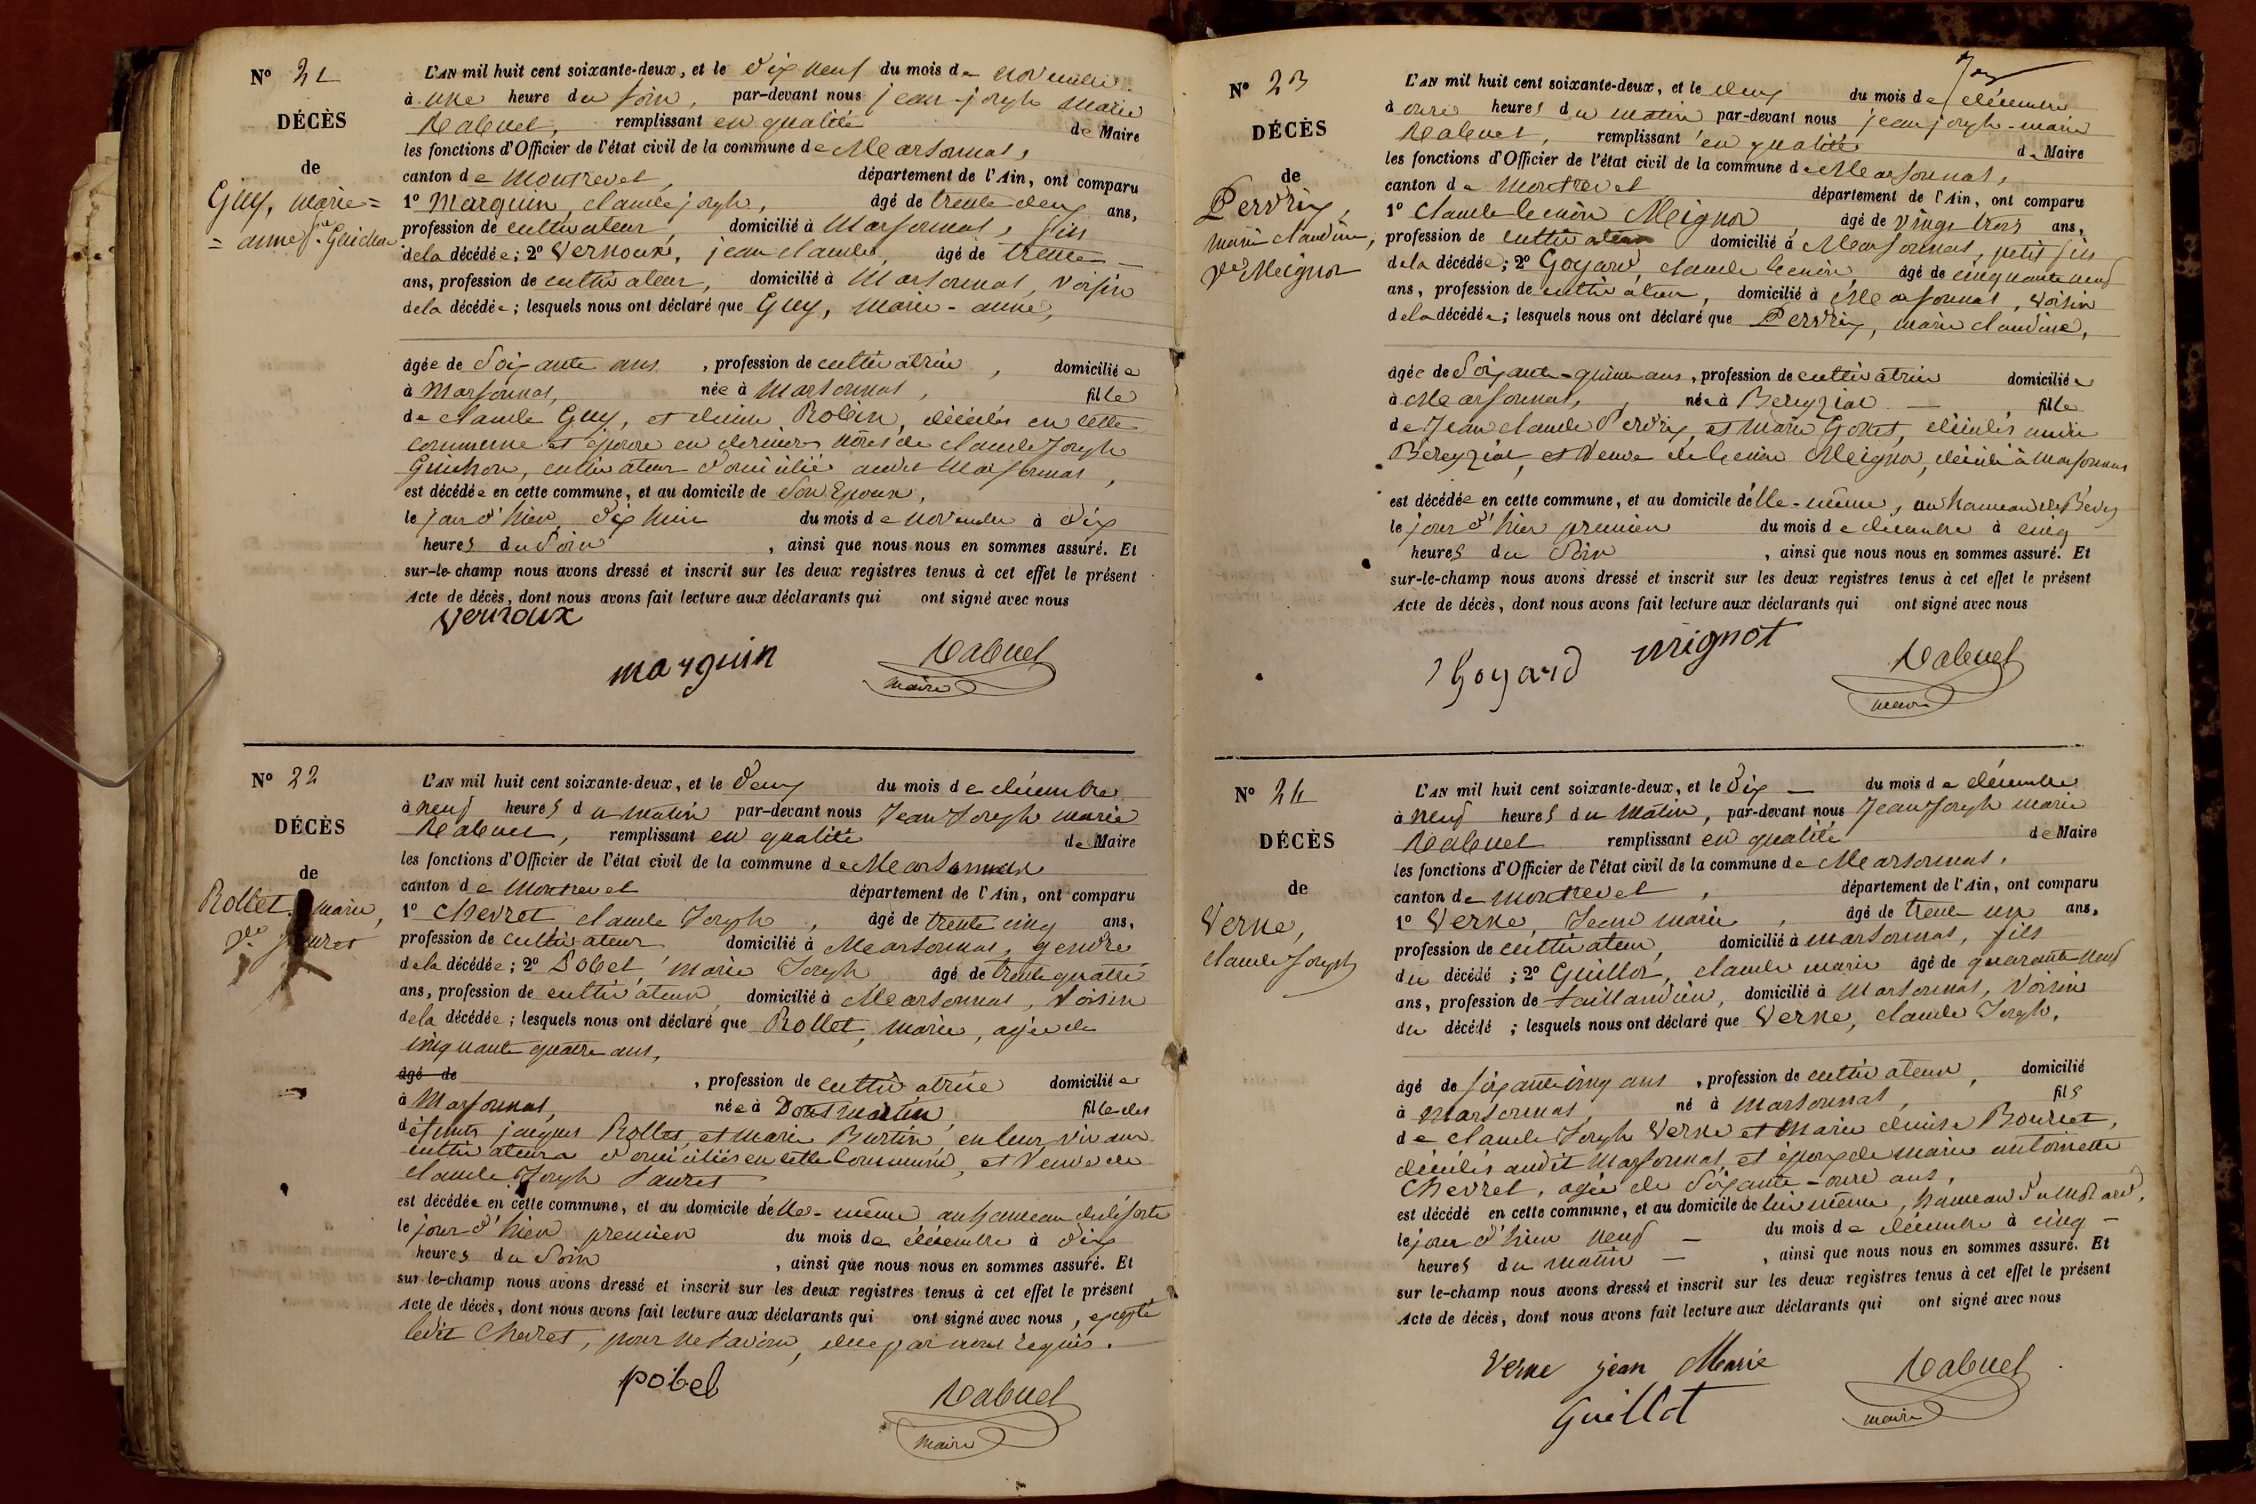 N° 21
DÉCÈS
de
Guy, marie=
=anne fe Guichon
L'AN mil huit cent soixante-deux, et le dix neuf du mois de novembre
à une heure du soir, par-devant nous jean-joseph marie
Rabuel, remplissant en qualité de Maire
les fonctions d'Officier de l'état civil de la commune de Marsonnas,
canton de Montrevel, département de l'Ain, ont comparu
1° Marguin, claude joseph, âgé de trente deux ans,
profession de cultivateur, domicilié à Marsonnas, fils
de la décédée; 2° Vernoux, jean claude, âgé de trente
ans, profession de cultivateur, domicilié à Marsonnas, voisin
de la décédée; lesquels nous ont déclaré que Guy, marie-anne,
âgée de Soixante ans, profession de cultivatrice, domiciliée
à Marsonnas, née à Marsonnas, fille
de claude Guy, et denise Robin, décédés en cette
commune et épouse en dernières nôces de claude Joseph
Guichon, cultivateur domicilié audit Marsonnas,
est décédée en cette commune, et au domicile de Son Epoux,
le jour d'hier, dix huit du mois de novembre à dix
heures du Soir, ainsi que nous nous en sommes assuré. Et
sur-le-champ nous avons dressé et inscrit sur les deux registres tenus à cet effet le présent
Acte de décès, dont nous avons fait lecture aux déclarants qui ont signé avec nous
vernoux
marguin
Rabuel
maire
N° 22
DÉCÈS
de
Rollet, marie,
Ve
L'AN mil huit cent soixante-deux, et le deux du mois de décembre
à neuf heures du matin par-devant nous Jean Joseph marie
Rabuel, remplissant en qualité de Maire
les fonctions d'Officier de l'état civil de la commune de Marsonnas
canton de Montrevel département de l'Ain, ont comparu
1° Chevret claude Joseph, âgé de trente cinq ans,
profession de cultivateur domicilié à Marsonnas, gendre
de la décédée; 2° Pobel marie Joseph âgé de trente quatre
ans, profession de cultivateur domicilié à Marsonnas, voisin
de la décédée; lesquels nous ont déclaré que Rollet, marie, agée de
cinquante quatre ans,
âgé de, profession de cultivatrice domiciliée
à Marsonnas, née à Dommartin, fille des
défunts jacques Rollet, et marie Burtin, en leur vivant
cultivateurs domiciliés en cette Commune, et Veuve de
claude Joseph
est décédée en cette commune, et au domicile d'elle-même au hameau
le jour d'hier premier du mois de décembre à dix
heures du Soir, ainsi que nous nous en sommes assuré. Et
sur-le-champ nous avons dressé et inscrit sur les deux registres tenus à cet effet le présent
Acte de décès, dont nous avons fait lecture aux déclarants qui ont signé avec nous, excepté
ledit Chevret, pour ne savoir, de ce par nous requis.
pobel
Rabuel
maire
N° 23
DÉCÈS
de
Perdrix,
marie claudine,
Ve Meignot
L'AN mil huit cent soixante-deux, et le deux du mois de décembre
à onze heures du matin par-devant nous jean joseph-marie
Rabuel, remplissant en qualité de Maire
les fonctions d'Officier de l'état civil de la commune de Marsonnas,
canton de Montrevel département de l'Ain, ont comparu
1° Claude Meignot, âgé de vingt trois ans,
profession de cultivateur domicilié à Marsonnas, petit fils
de la décédée; 2° Goyard, claude âgé de cinquante neuf
ans, profession de cultivateur, domicilié à Marsonnas, voisin
de la décédée; lesquels nous ont déclaré que Perdrix, marie claudine,
âgée de Soixante-quinze ans, profession de cultivatrice domiciliée
à Marsonnas, née à Bereyziat, fille
de Jean claude Perdrix, et marie Gonet, décédés audit
Béreyziat, et Veuve de Meignot, décédé à Marsonnas
est décédée en cette commune, et au domicile d'elle-même, au hameau de
le jour d'hier premier du mois de décembre à cinq
heures du Soir, ainsi que nous nous en sommes assuré. Et
sur-le-champ nous avons dressé et inscrit sur les deux registres tenus à cet effet le présent
Acte de décès, dont nous avons fait lecture aux déclarants qui ont signé avec nous
mignot
Goyard
Rabuel
maire
N° 24
DÉCÈS
de
Verne,
claude Joseph
L'AN mil huit cent soixante-deux, et le dix du mois de décembre
à neuf heures du matin, par-devant nous Jean Joseph marie
Rabuel remplissant en qualité de Maire
les fonctions d'Officier de l'état civil de la commune de Marsonnas,
canton de Montrevel, département de l'Ain, ont comparu
1° Verne, Jean marie, âgé de trente un ans,
profession de cultivateur, domicilié à Marsonnas, fils
du décédé; 2° Guillot, claude marie âgé de quarante neuf
ans, profession de taillandier, domicilié à Marsonnas, voisin
du décédé; lesquels nous ont déclaré que Verne, claude Joseph,
âgé de soixante cinq ans, profession de cultivateur, domicilié
à Marsonnas, né à Marsonnas, fils
de claude Joseph Verne et Marie denise Bourcet,
décédés audit Marsonnas, et époux de marie antoinette
Chevret, agée de Soixante-onze ans,
est décédé en cette commune, et au domicile de lui même, hameau du
le jour d'hier neuf du mois de décembre à cinq
heures du matin, ainsi que nous nous en sommes assuré. Et
sur le-champ nous avons dressé et inscrit sur les deux registres tenus à cet effet le présent
Acte de décès, dont nous avons fait lecture aux déclarants qui ont signé avec nous
Verne jean Marie
Guillot
Rabuel
maire